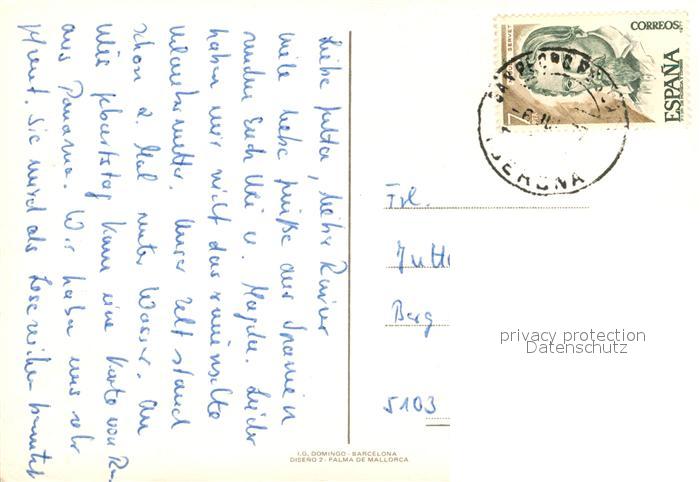 Liebe Jutta, lieber Rainer
viele liebe Grüße aus Spanien
senden Euch Uli u. Magda. Leider
haben wir nicht das erwünschte
Urlaubswetter. Unser Zelt stand
schon 2. Mal unter Wasser. Am
Uli's Geburtstag kam eine Karte von
aus Panama. Wir haben uns sehr
gefreut. Sie wird als Lesezeichen benutzt
CORREOS
ESPAÑA
SERVET
7
GERONA
Frl.
Jutt
Berg
5103
privacy protection
Datenschutz
I.G. DOMINGO - BARCELONA
DISEÑO 2 - PALMA DE MALLORCA